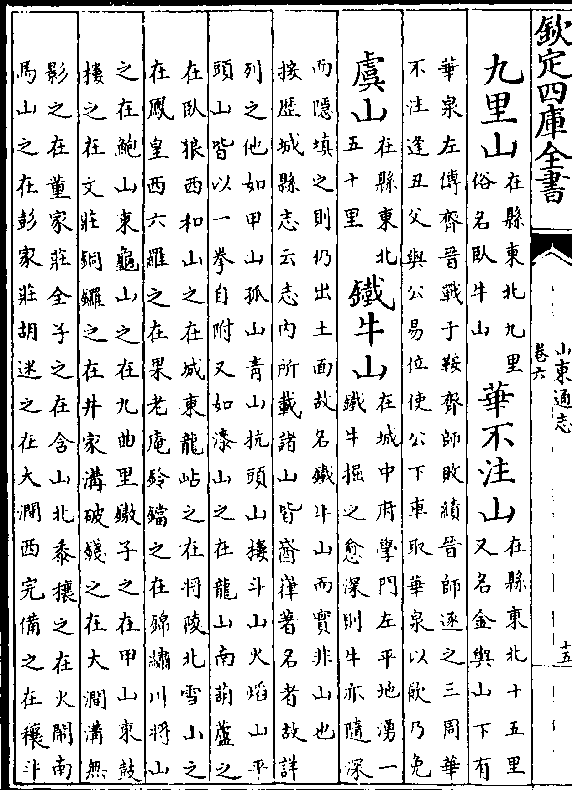 欽定四庫全書
山東通志
卷六
十五
九里山
在縣東北九里
俗名臥牛山
華不注山
在縣東北十五里
又名金輿山下有
華泉左傳齊晉戰于鞍齊師敗績晉師逐之三周華
不注逢丑父與公易位使公下車取華泉以飲乃免
虞山
在縣東北
五十里
鐵牛山
在城中府學門左平地湧一
鐵牛掘之愈深則牛亦隨深
而隱填之則仍出土面故名鐵斗山而實非山也
接歴城縣志云志内所載諸山皆嵂著名者故詳
列之他如甲山孤山青山抗頭山接斗山火熖山平
頭山皆以一拳自附又如漆山之在龍山南葫蘆之
在臥狼西和山之在城東龍岾之在将陵北雪山之
在鳳皇西六羅之在果老庵鈴鐺之在錦繡川將山
之在鮑山東龜山之在九曲里墩子之在甲山東鼓
摟之在文莊銅鑼之在井家溝破之在大澗溝無
影之在董家莊全子之在含山北黍攘之在火閙南
馬山之在彭家莊胡迷之在大澗西完備之在穰斗